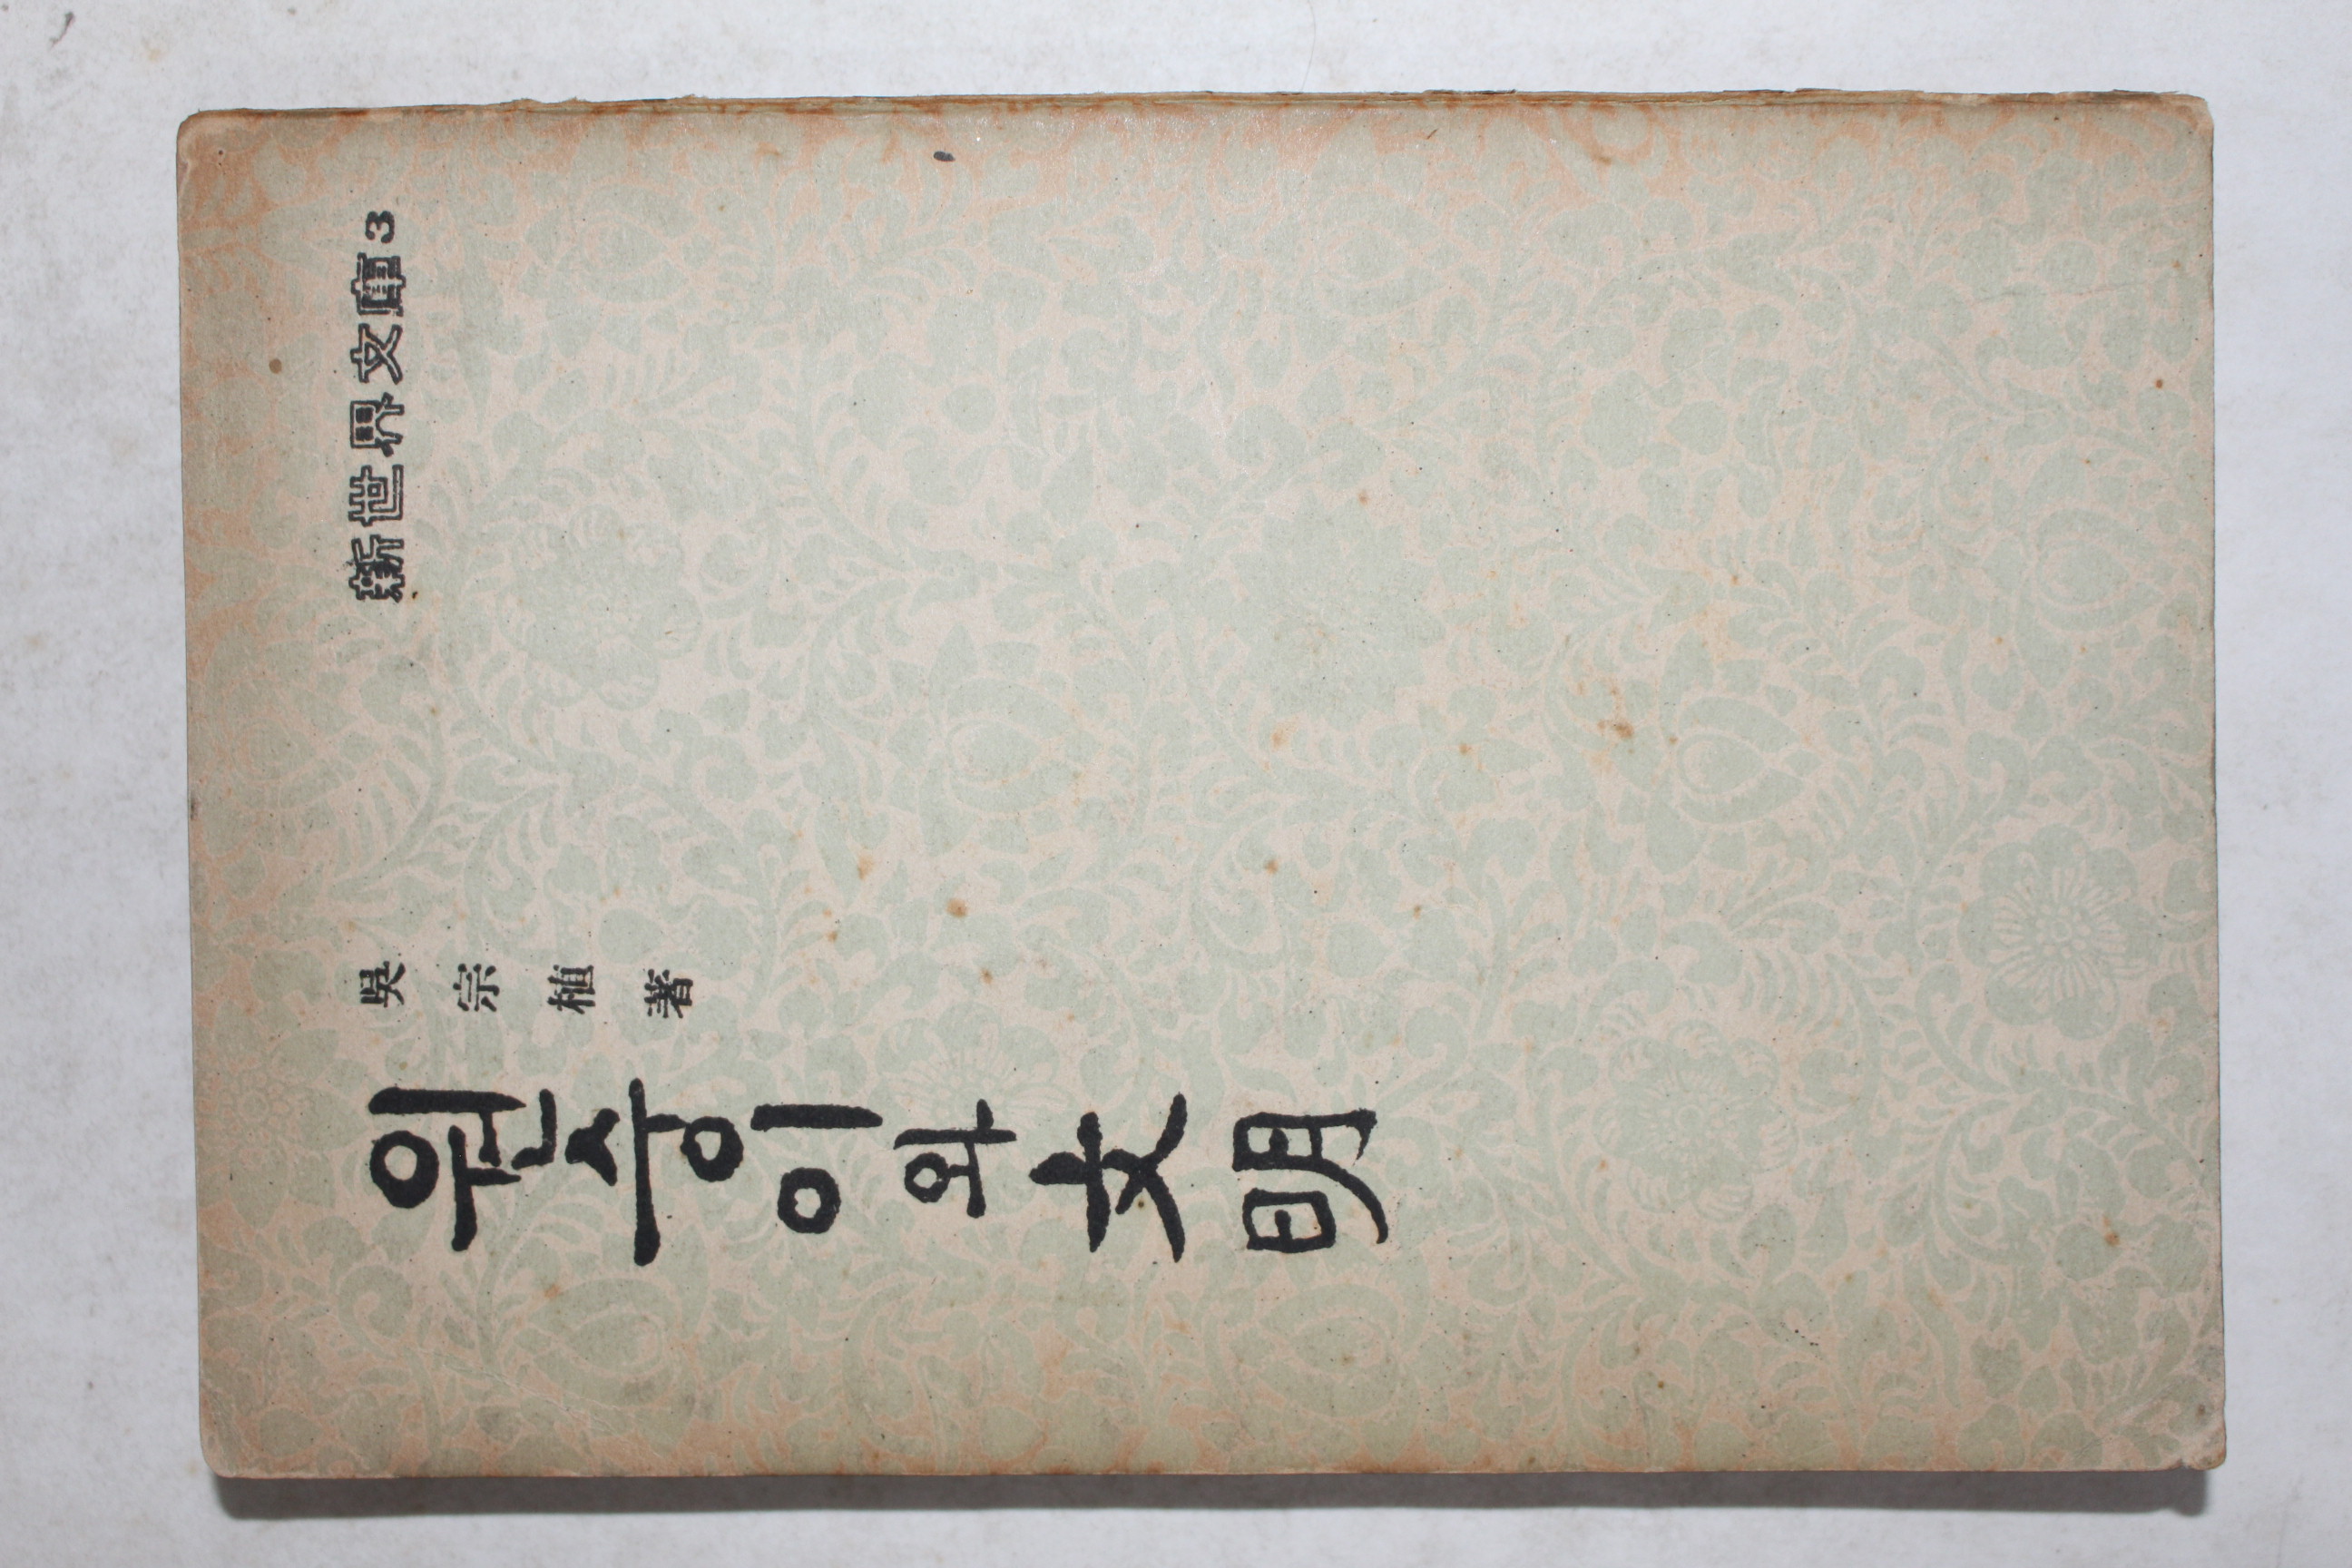 新世界文庫3
吳宗植著
원숭이와文明